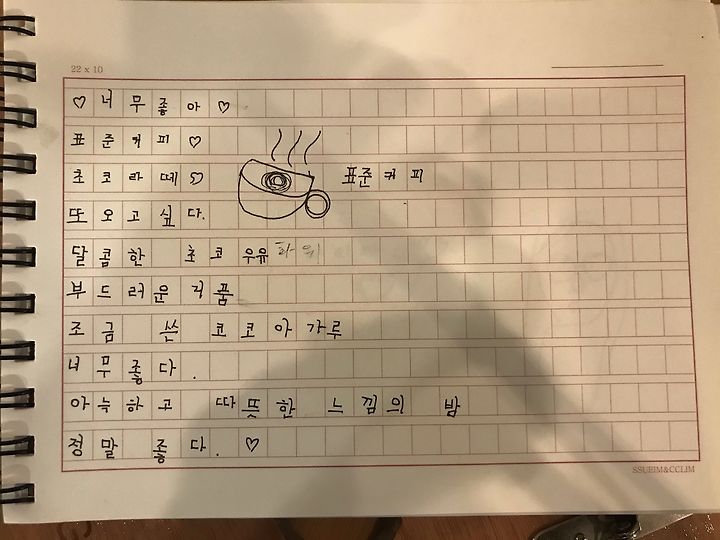 22 x 10
♡ 너무좋아 ♡
표준커피 ♡
초코라떼 ♡
표준커피
또오고싶다.
달콤한 초코우유
부드러운거품
조금 쓴 코코아가루
너무좋다.
아늑하고 따뜻한 느낌의 밤
정말 좋다. ♡
SSUEIM&CCLIM